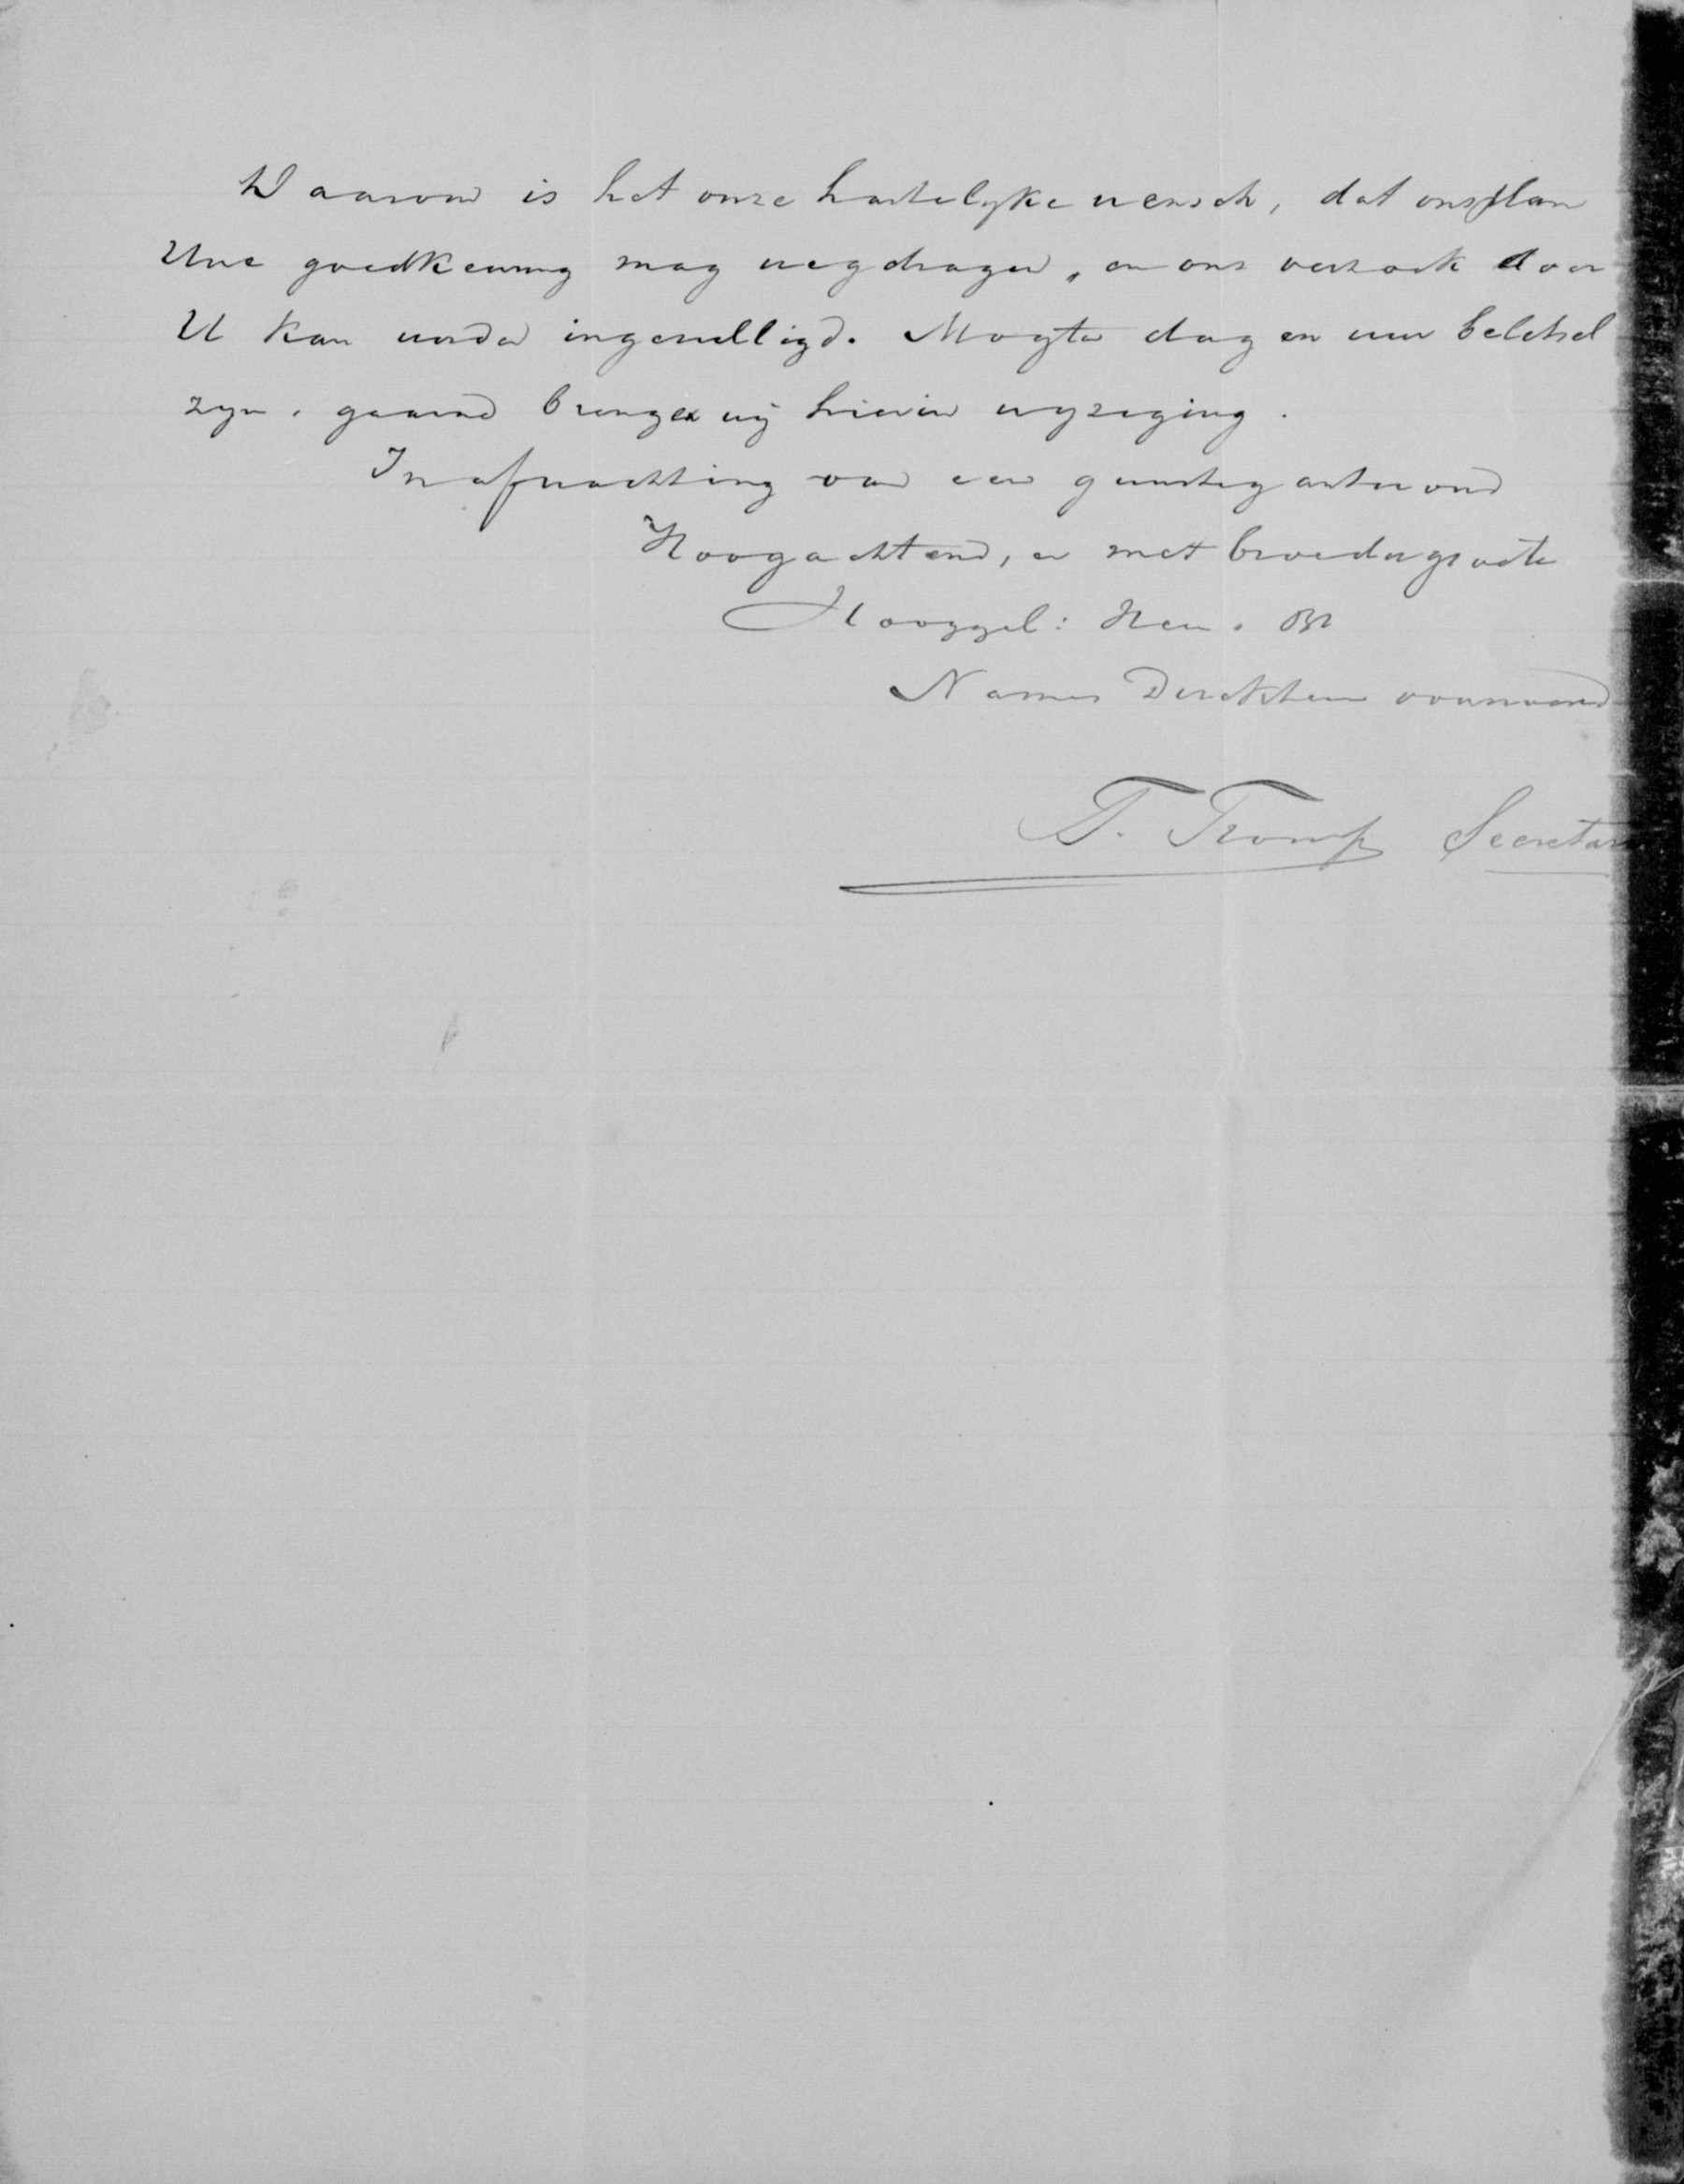 Daarom is het onze hartelyke wensch, dat ons plan
Uwe goedkeuring mag wegdragen, en ons verzoek door
U kan worden ingewilligd. Mogten dag en uur beletsel
zyn, gaarne brengen wij hierin wyziging.
In afwachting van een gunstig antwoord
Hoogachtend, en met broedergroete
Hooggel: Heer. Br
Namens Direktie voornoemd
T. Tromp Secretar